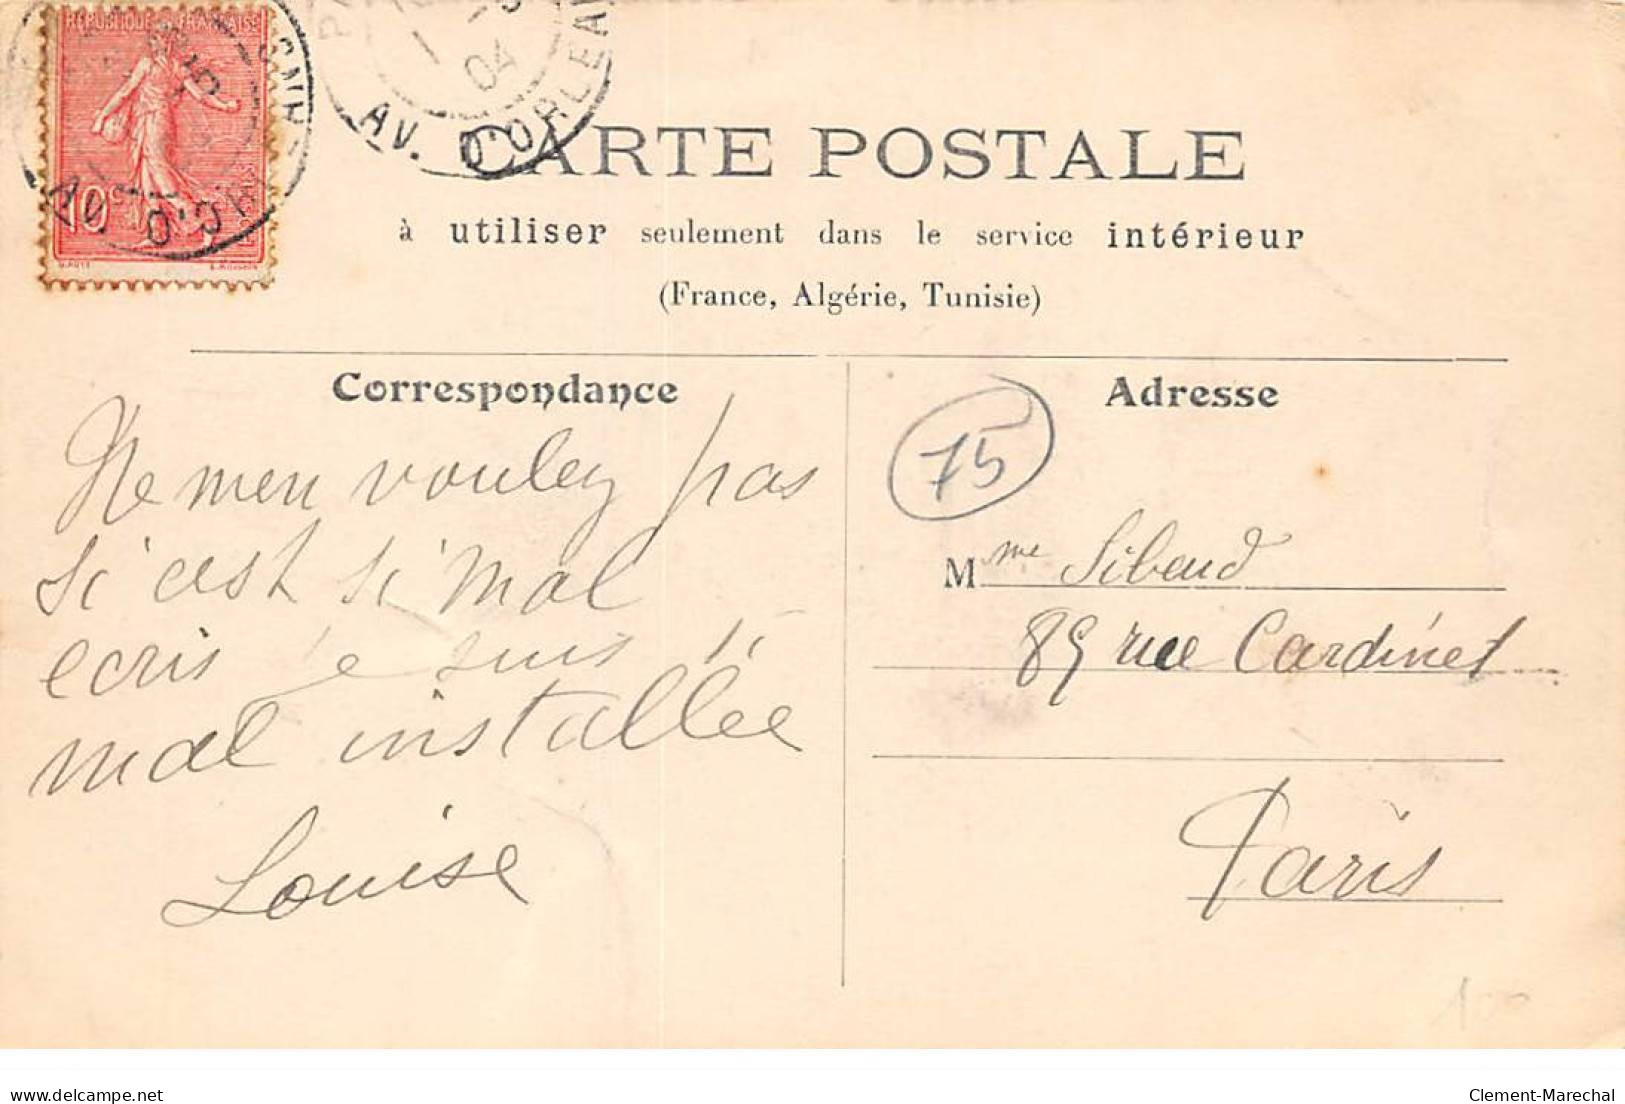 REPUBLIQUE FRANCAISE
10
04
AV. D'ORLEA
CARTE POSTALE
à utiliser seulement dans le service intérieur
(France, Algérie, Tunisie)
Correspondance
Adresse
75
Ne men voulez pas
si c'est si mal
ecris je suis si
mal installée
Louise
Mme Sibaud
89 rue Cardinet
Paris
100
delcampe.net
Clement-Marechal